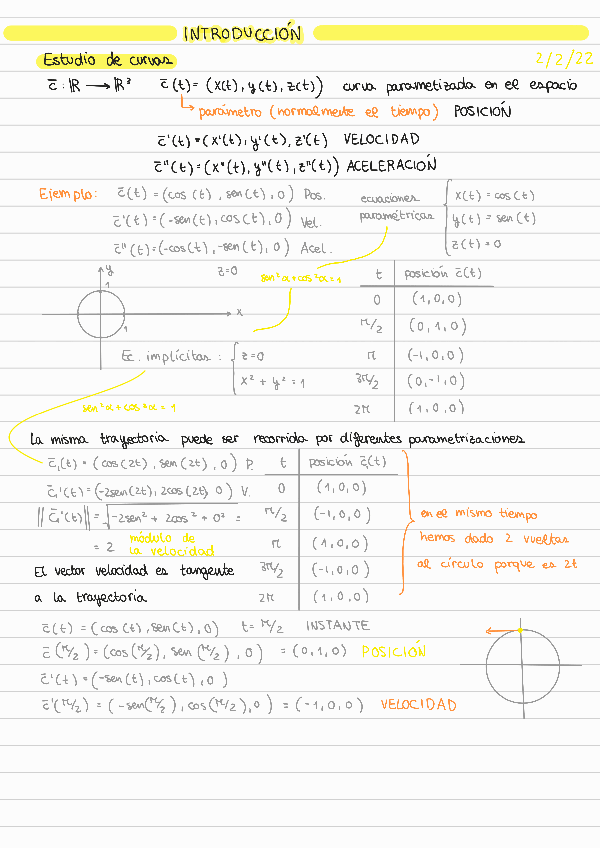 INTRODUCCIÓN
Estudio de curvas
2/2/22
c̄ : ℝ → ℝ³ c̄(t) = (x(t), y(t), z(t)) curva parametizada en el espacio
parámetro (normalmente el tiempo) POSICIÓN
c̄'(t) = (x'(t), y'(t), z'(t) VELOCIDAD
c̄''(t) = (x''(t), y''(t), z''(t)) ACELERACIÓN
Ejemplo: c̄(t) = (cos (t), sen(t), 0) Pos.
c̄'(t) = (-sen(t), cos(t), 0) Vel.
c̄''(t) = (-cos(t), -sen(t), 0) Acel.
ecuaciones paramétricas
x(t) = cos(t)
y(t) = sen(t)
z(t) = 0
y
1
x
1
z=0
sen²α + cos²α = 1
t posición c̄(t)
0 (1,0,0)
π/2 (0,1,0)
π (-1,0,0)
3π/2 (0,-1,0)
2π (1,0,0)
Ec. implícitas : z=0
x² + y² = 1
sen²α + cos²α = 1
La misma trayectoria puede ser recorrida por diferentes parametrizaciones
c̄₁(t) = (cos(2t), sen(2t), 0) P.
c̄₁'(t) = (-2sen(2t), 2cos(2t), 0) V.
||c̄₁'(t)|| = √-2sen² + 2cos² + 0² =
= 2 módulo de la velocidad
El vector velocidad es tangente
a la trayectoria
t posición c̄₁(t)
0 (1,0,0)
π/2 (-1,0,0)
π (1,0,0)
3π/2 (-1,0,0)
2π (1,0,0)
en el mismo tiempo
hemos dado 2 vueltas
al círculo porque es 2t
c̄(t) = (cos(t), sen(t), 0) t = π/2 INSTANTE
c̄(π/2) = (cos(π/2), sen(π/2), 0) = (0,1,0) POSICIÓN
c̄'(t) = (-sen(t), cos(t), 0)
c̄'(π/2) = (-sen(π/2), cos(π/2), 0) = (-1,0,0) VELOCIDAD